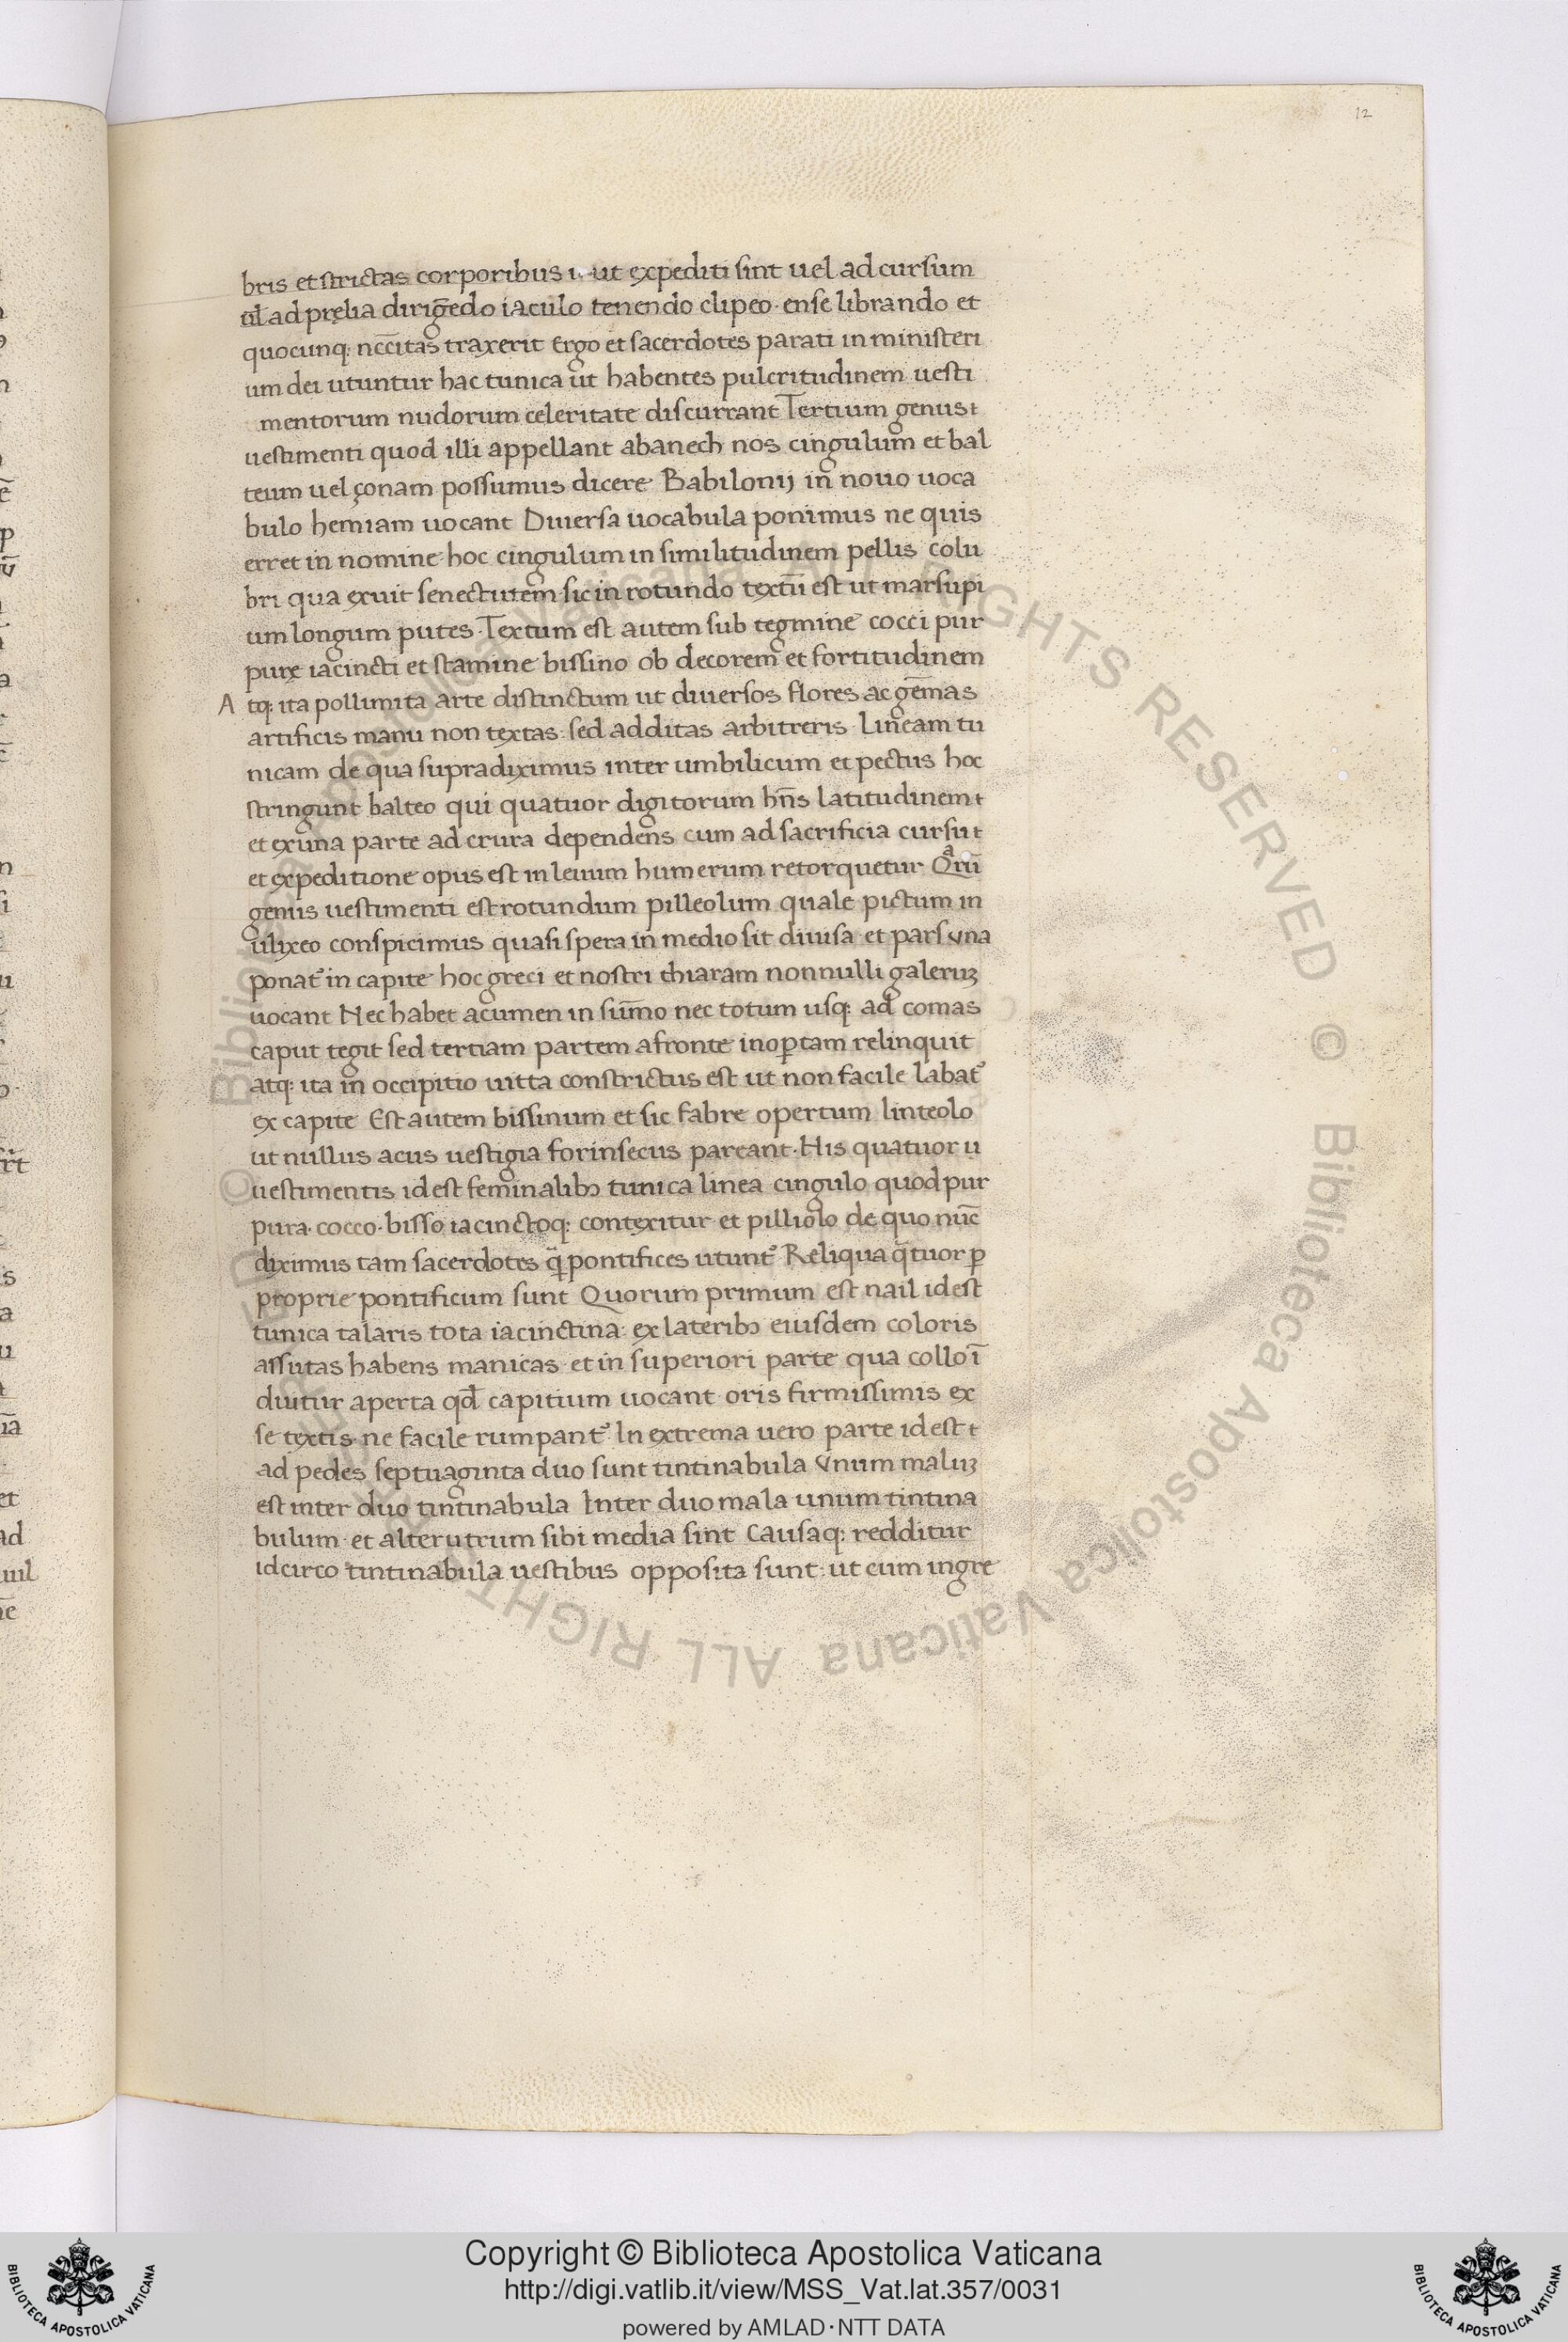 12
bris et strictas corporibus ut expediti sint uel ad cursum
ul̄ ad pręlia dirigēdo iaculo tenendo clipeo· ense librando et
quocunq: nccītas traxerit Ergo et sacerdotes parati in ministeri
um dei utuntur hac tunica ut habentes pulcritudinem uesti
mentorum nudorum celeritate discurrant Tertium genus
uestimenti quod illi appellant abanech nos cingulum et bal
teum uel çonam possumus dicere Babilonij in nouo uoca
bulo hemiam uocant Diuersa uocabula ponimus ne quis
erret in nomine· hoc cingulum in similitudinem pellis colu
bri qua exuit senectutem sic in rotundo textū est ut marsupi
um longum putes· Textum est autem sub tegmine cocci pur
purę iacincti et stamine bissino ob decorem et fortitudinem
A tq: ita pollimita arte distinctum ut diuersos flores ac gēmas
artificis manu non textas: sed additas arbitreris· Lineam tu
nicam de qua supradiximus inter umbilicum et pectus hoc
stringunt balteo qui quatuor digitorum hn̄s latitudinem
et ex una parte ad crura dependens cum ad sacrificia cursu
et expeditione opus est in leuum humerum retorquetur Qᵃrtū
genus uestimenti est rotundum pilleolum quale pictum in
ulixeo conspicimus quasi spera in medio sit diuisa· et pars una
ponat᷑ in capite· hoc greci et nostri thiaram nonnulli galeruꝫ
uocant Nec habet acumen in sūmo nec totum usq: ad comas
caput tegit sed tertiam partem a fronte inoꝑtam relinquit
atq: ita in occipitio uitta constrictus est ut non facile labat᷑
ex capite Est autem bissinum et sic fabre opertum linteolo
ut nullus acus uestigia forinsecus pareant· His quatuor u
uestimentis id est feminalibꝫ tunica linea cingulo quod pur
pura· cocco· bisso iacinctoq: contexitur et pilliolo de quo nūc
diximus tam sacerdotes q̄ pontifices utunt᷑ Reliqua q̄tuor ꝑ
proprie pontificum sunt Quorum primum est nail id est
tunica talaris tota iacinctina: ex lateribꝫ eiusdem coloris
assutas habens manicas· et in superiori parte qua collo ī
diutur aperta qd̄ capitium uocant· oris firmissimis ex
se textis· ne facile rumpant᷑ In extrema uero parte id est
ad pedes septuaginta duo sunt tintinabula Vnum maluꝫ
est inter duo tintinabula Inter duo mala unum tintina
bulum· et alterutrum sibi media sint Causaq: redditur
idcirco tintinabula uestibus opposita sunt: ut cum ingre
© Biblioteca Apostolica Vaticana ALL RIGHTS RESERVED © Biblioteca Apostolica Vaticana ALL RIGHT
Copyright © Biblioteca Apostolica Vaticana
http://digi.vatlib.it/view/MSS_Vat.lat.357/0031
powered by AMLAD·NTT DATA
BIBLIOTECA APOSTOLICA VATICANA
BIBLIOTECA APOSTOLICA VATICANA